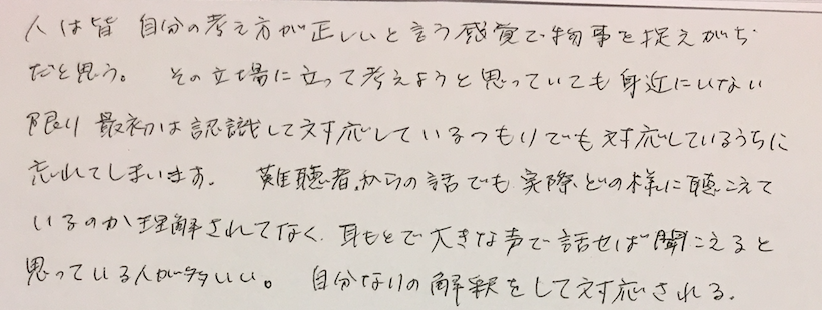 人は皆 自分の考え方が正しいと言う感覚で物事を捉えがち
だと思う。 その立場に立って考えようと思っていても身近にいない
限り 最初は認識して対応しているつもりでも対応しているうちに
忘れてしまいます。 難聴者からの話でも実際どの様に聴こえて
いるのか理解されてなく、耳もとで大きな声で話せば聞こえると
思っている人が多いい。 自分なりの解釈をして対応される。